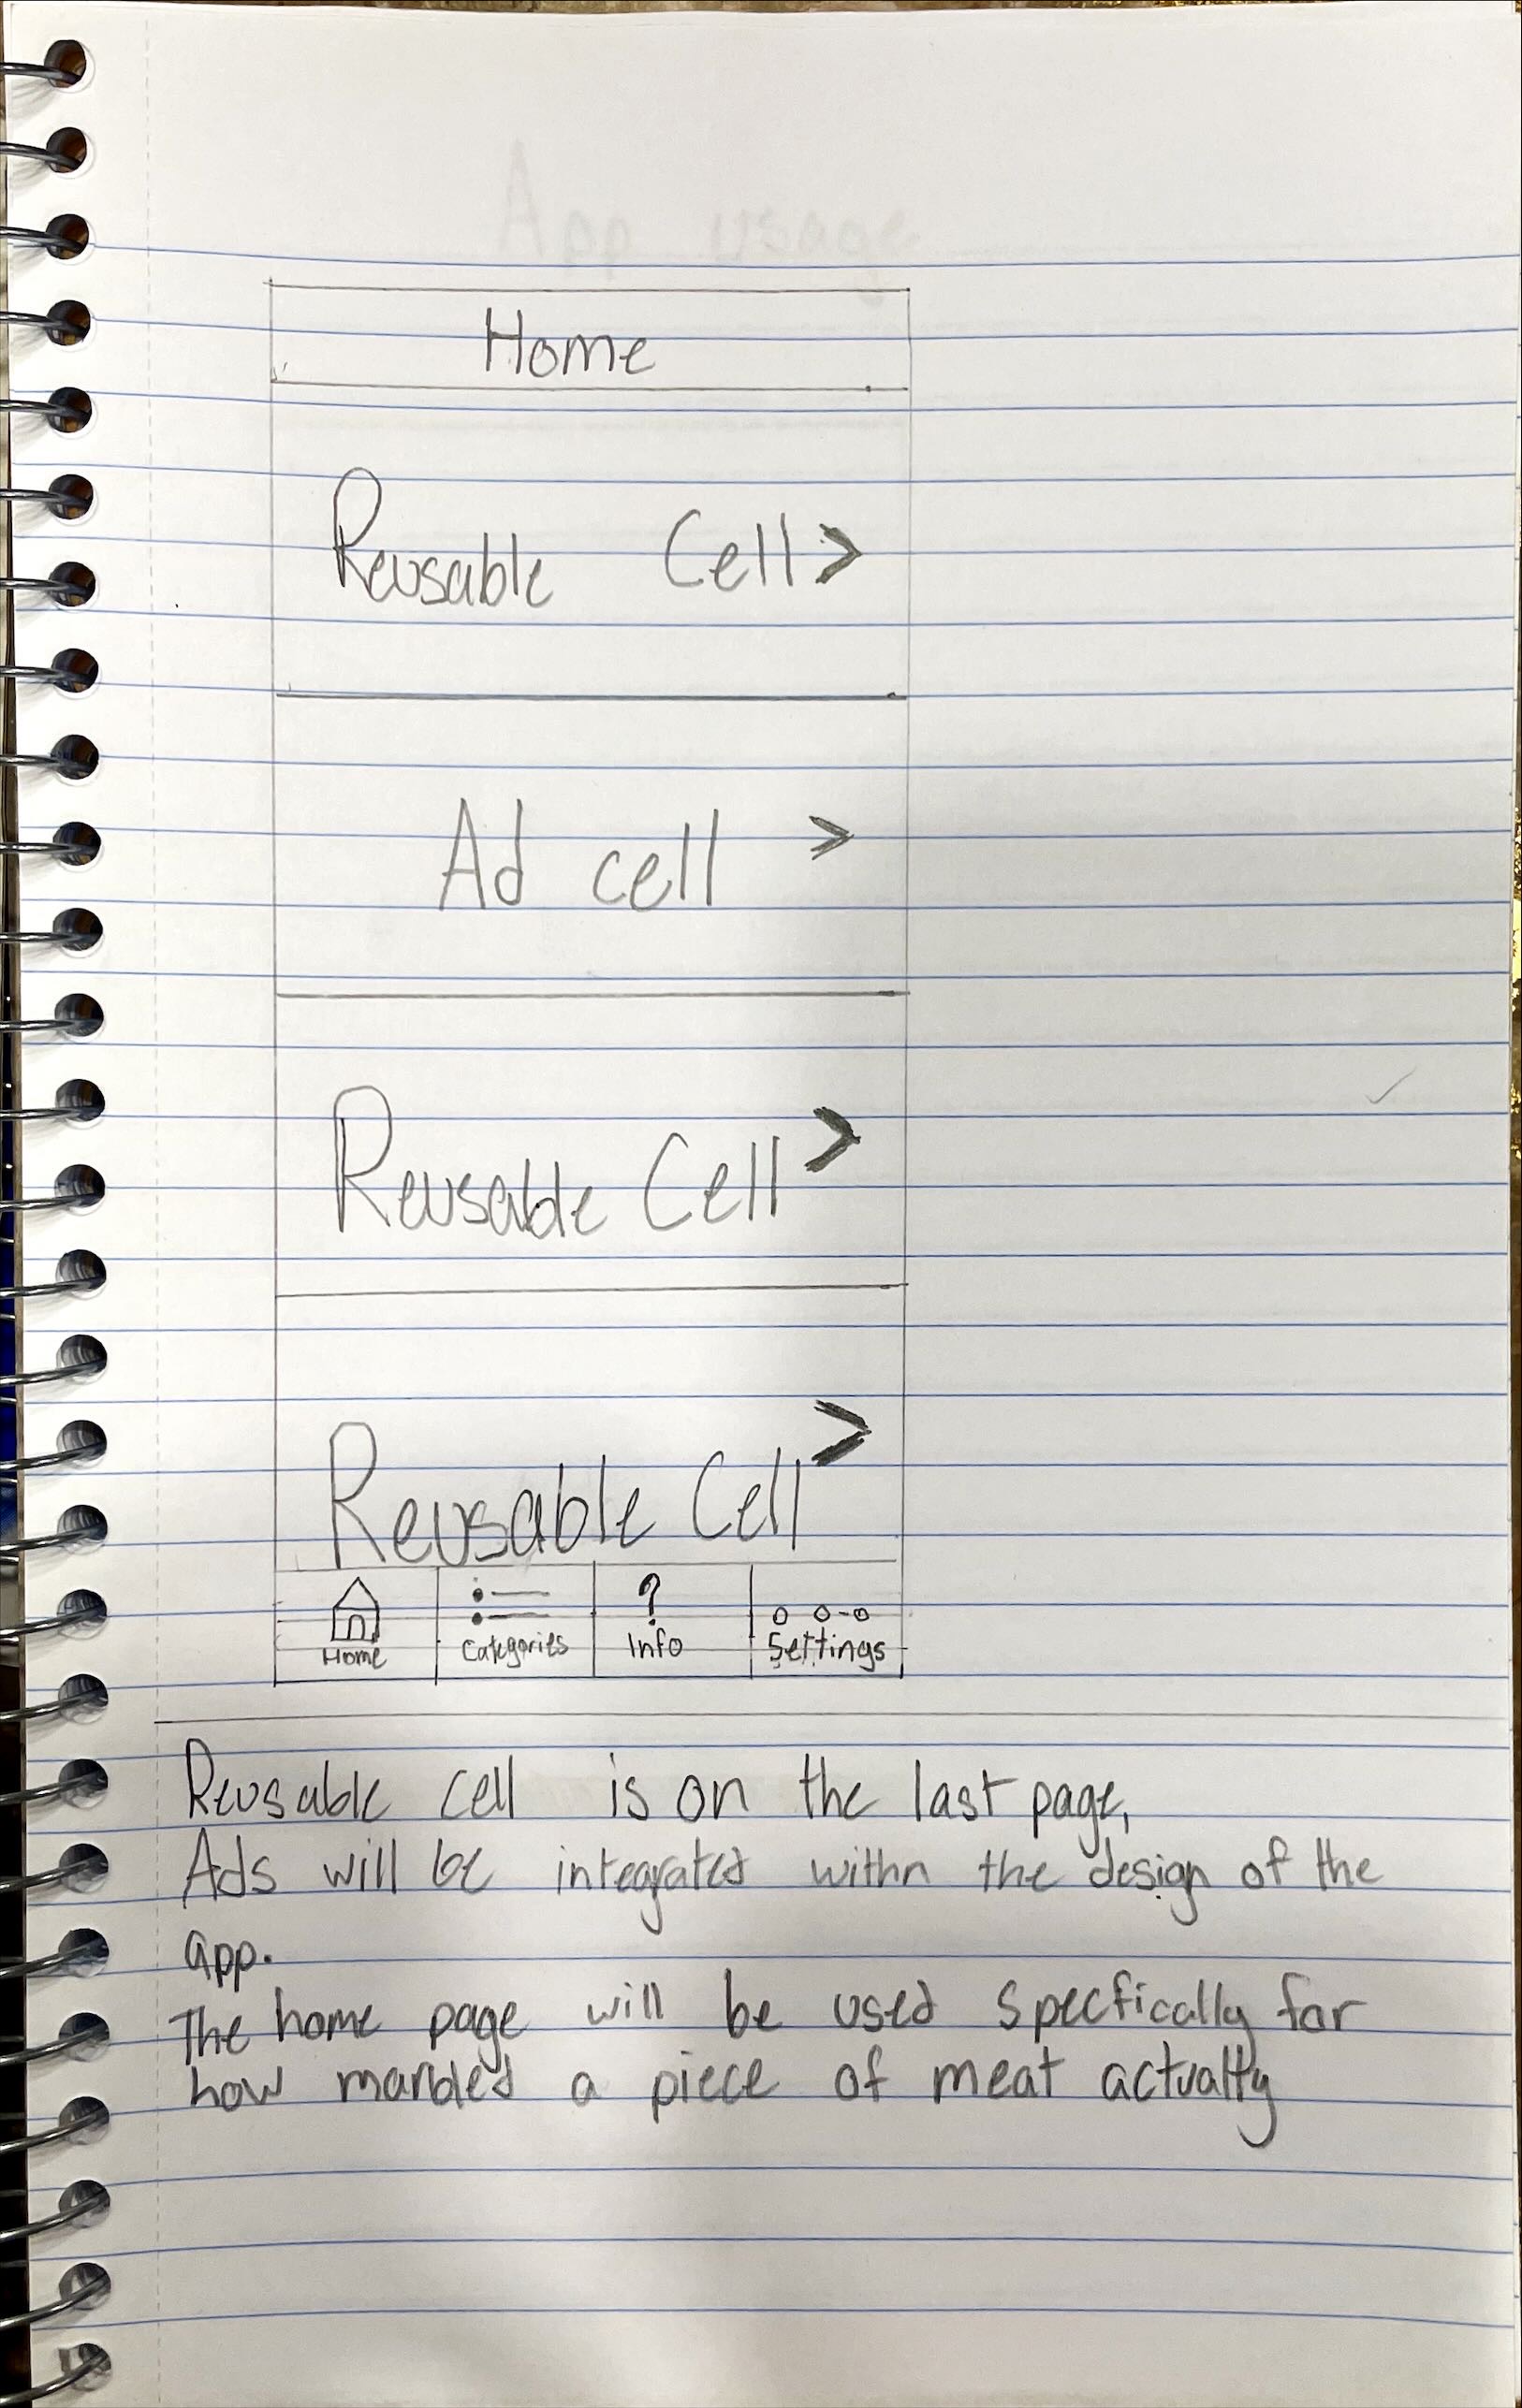 App usage
Home
Reusable Cell >
Ad cell >
Reusable Cell >
Reusable Cell >
? 
Home Categories Info Settings
Reusable cell is on the last page,
Ads will be integrated withn the design of the
app.
The home page will be used specfically for
how marbled a piece of meat actually